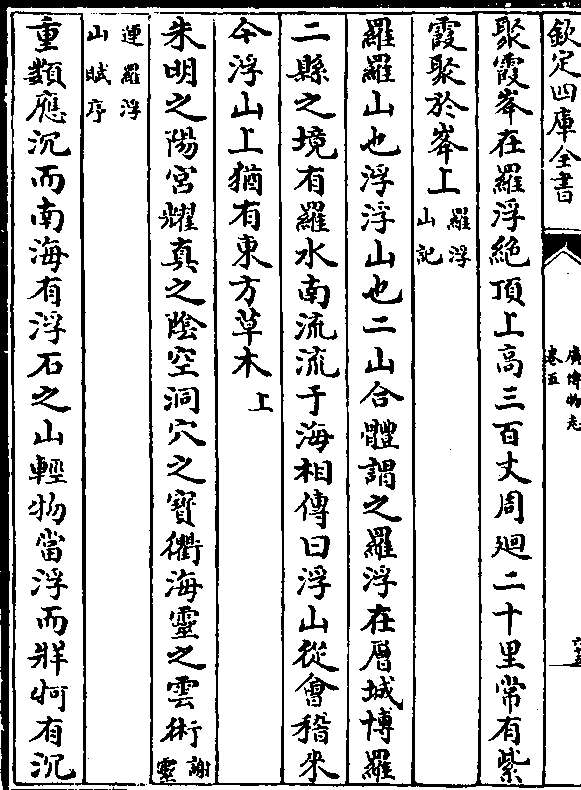 欽定四庫全書
廣博物志
卷五
聚霞峯在羅浮絶頂上高三百丈周廻二十里常有紫
霞聚於峯上
羅浮
山記
羅羅山也浮浮山也二山合體謂之羅浮在層城博羅
二縣之境有羅水南流流于海相傳曰浮山從會稽來
今浮山上猶有東方草木
上
朱明之陽宮耀真之陰空洞穴之寳衢海靈之雲術
謝
靈
運羅浮
山賦序
重類應沉而南海有浮石之山輕物當浮而牂牁有沉